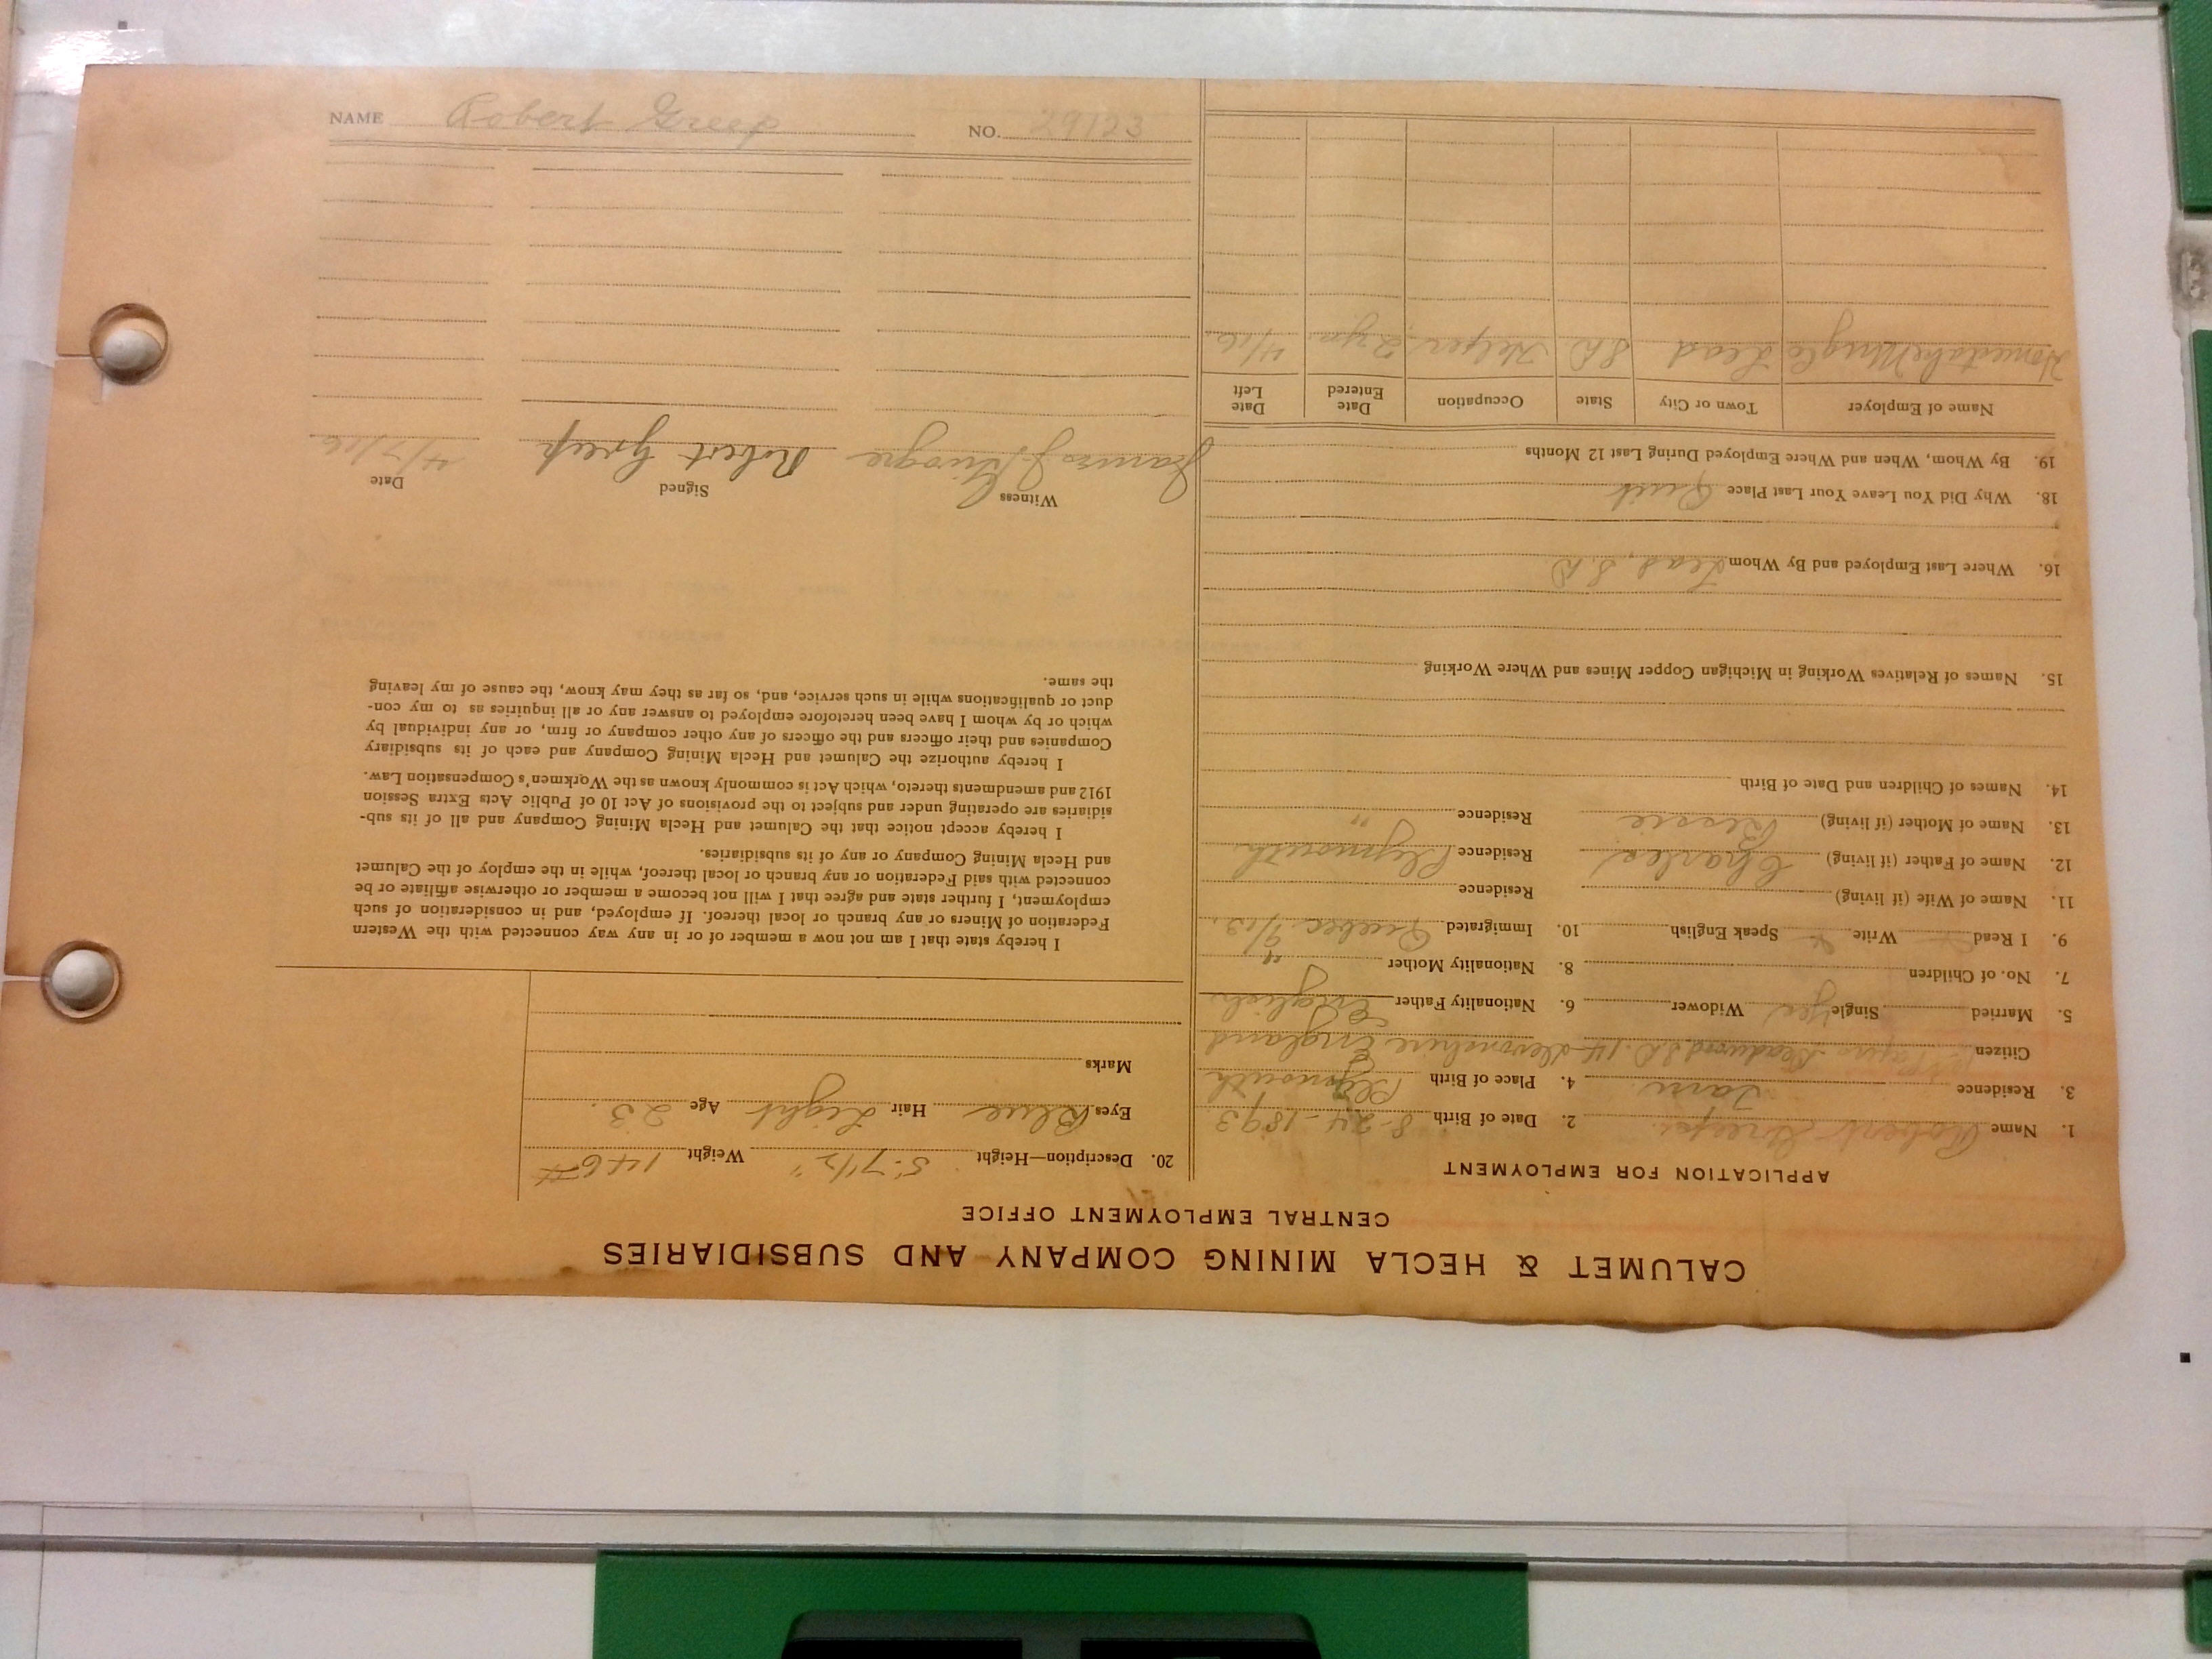 NAME Robert Greep NO. 29123
CALUMET & HECLA MINING COMPANY AND SUBSIDIARIES
CENTRAL EMPLOYMENT OFFICE
APPLICATION FOR EMPLOYMENT
1. Name Robert Greep. 2. Date of Birth 8-24-1893
3. Residence 4. Place of Birth Plymouth
Citizen Deadwood S.D. 14 Devonshire England
5. Married Single Yes Widower 6. Nationality Father English
7. No. of Children 8. Nationality Mother "
9. I Read Write Speak English 10. Immigrated Quebec 9/13.
11. Name of Wife (if living) Residence
12. Name of Father (if living) Charles Residence Plymouth
13. Name of Mother (if living) Bessie Residence "
14. Names of Children and Date of Birth
15. Names of Relatives Working in Michigan Copper Mines and Where Working
16. Where Last Employed and By Whom Lead, S.D
18. Why Did You Leave Your Last Place Quit
19. By Whom, When and Where Employed During Last 12 Months
Name of Employer Town or City State Occupation Date Entered Date Left
Homestake Lead SD Helper 4/16.
20. Description—Height 5'-7 1/2" Weight 146#
Eyes Blue Hair Light Age 23.
Marks
I hereby state that I am not now a member of or in any way connected with the Western
Federation of Miners or any branch or local thereof. If employed, and in consideration of such
employment, I further state and agree that I will not become a member or otherwise affiliate or be
connected with said Federation or any branch or local thereof, while in the employ of the Calumet
and Hecla Mining Company or any of its subsidiaries.
I hereby accept notice that the Calumet and Hecla Mining Company and all of its sub-
sidiaries are operating under and subject to the provisions of Act 10 of Public Acts Extra Session
1912 and amendments thereto, which Act is commonly known as the Workmen's Compensation Law.
I hereby authorize the Calumet and Hecla Mining Company and each of its subsidiary
Companies and their officers and the officers of any other company or firm, or any individual by
which or by whom I have been heretofore employed to answer any or all inquiries as to my con-
duct or qualifications while in such service, and, so far as they may know, the cause of my leaving
the same.
Witness Signed Date
James J Robert Greep 4/7/16